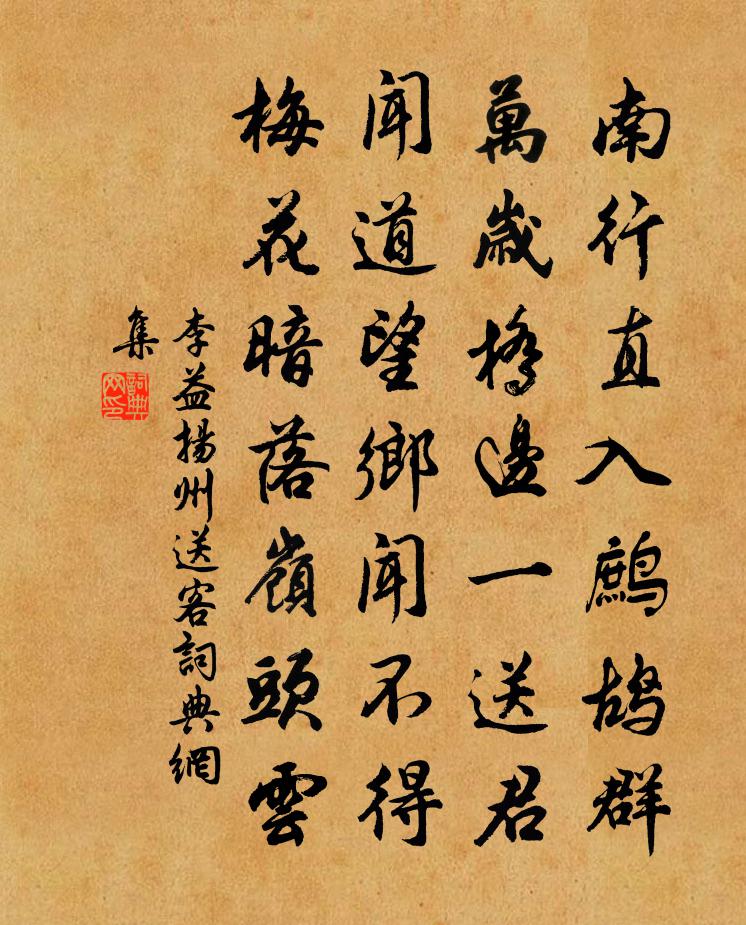 南行直入鷓鴣群
萬歲橋邊一送君
聞道望鄉聞不得
梅花暗落嶺頭雲
李益揚州送客詞典網
集
詞典
网印